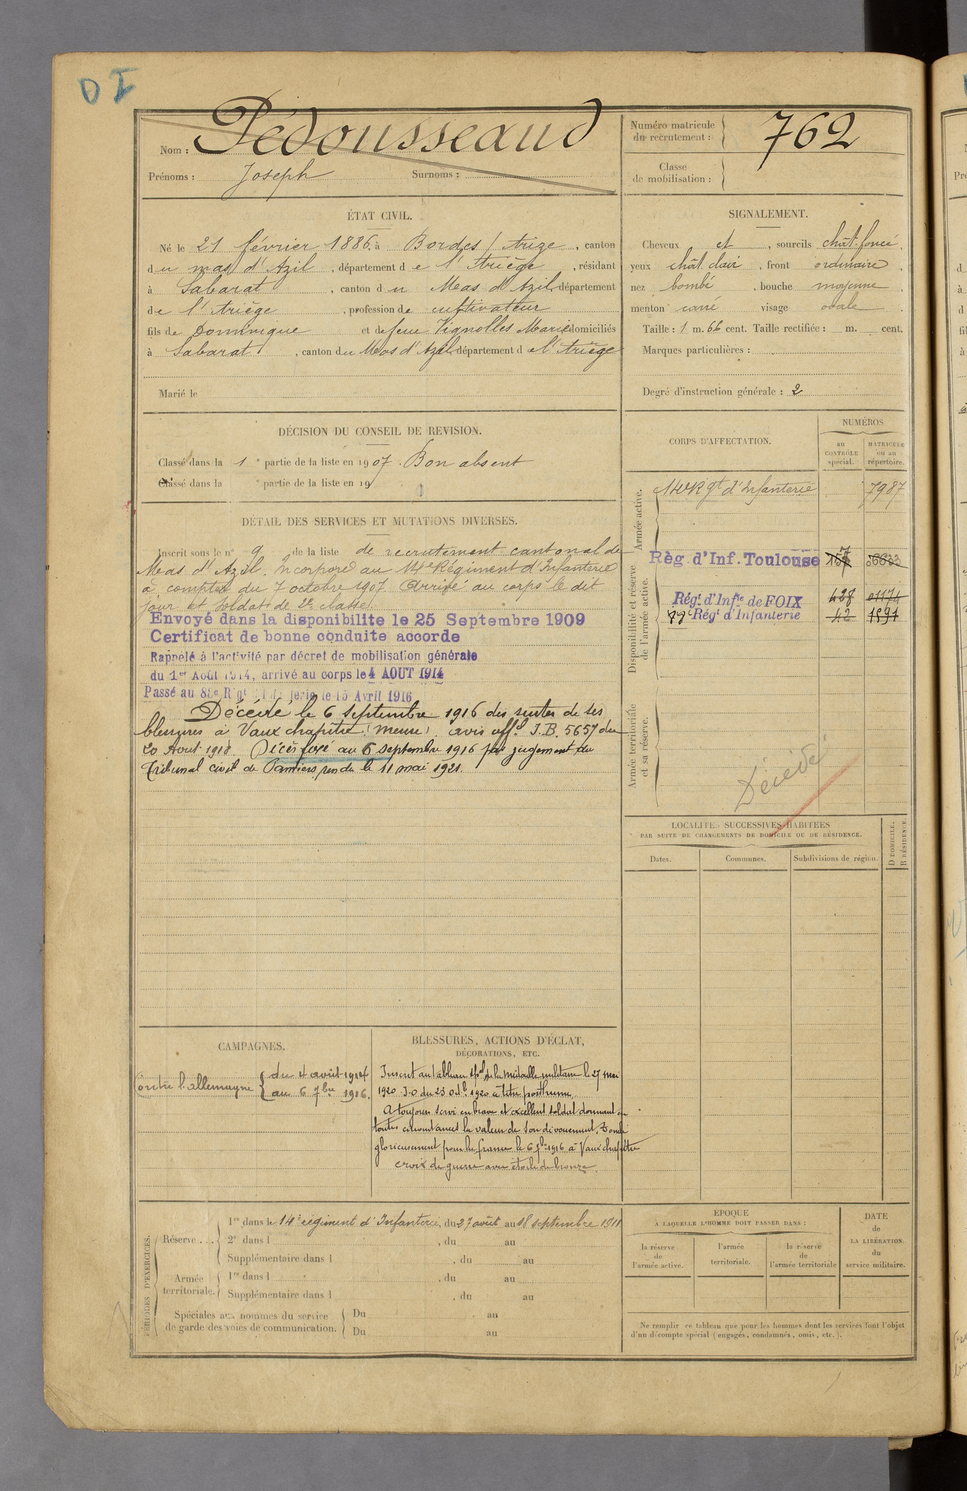 D I
Nom : Pédousseaud
Prénoms : Joseph Surnoms :
Numéro matricule du recrutement : 762
Classe de mobilisation :
ÉTAT CIVIL.
Né le 21 février 1886, à Bordes s/ Arize, canton
du mas d'Azil, département de l'Ariège, résidant
à Sabarat, canton du Mas d'Azil département
de l'Ariège, profession de cultivateur
fils de Dominique et de feue Vignolles Marie domiciliés
à Sabarat, canton du Mas d'Azil, département de l'Ariège
Marié le
SIGNALEMENT.
Cheveux et, sourcils chât. foncé,
yeux chât. clair, front ordinaire,
nez bombé, bouche moyenne,
menton carré visage ovale.
Taille : 1 m. 66 cent. Taille rectifiée : m. cent.
Marques particulières :
Degré d'instruction générale : 2
DÉCISION DU CONSEIL DE REVISION.
Classé dans la 1e partie de la liste en 1907. Bon absent
Classé dans la e partie de la liste en 19
CORPS D'AFFECTATION.
NUMÉROS
AU CONTRÔLE spécial.
MATRICULE OU AU répertoire.
Armée active.
14e Rgt d'Infanterie 7987
Disponibilité et réserve de l'armée active.
Règ. d'Inf. Toulouse
Régt d'Infie de FOIX
Régt d'Infanterie
Armée territoriale et sa réserve.
Décédé
DÉTAIL DES SERVICES ET MUTATIONS DIVERSES.
Inscrit sous le n° 9 de la liste de recrutement cantonal de
Mas d'Azil. Incorporé au 14e Régiment d'Infanterie
à compter du 7 octobre 1907. Arrivé au corps le dit
jour et soldat de 2e classe.
Envoyé dans la disponibilite le 25 Septembre 1909
Certificat de bonne conduite accorde
Rappelé à l'activité par décret de mobilisation générale
du 1er Août 1914, arrivé au corps le 4 AOUT 1914
Passé au le 15 Avril 1916
Décédé le 6 septembre 1916 des suites de ses
blessures à Vaux chapitre (meuse). avis offel I.B. 5657 du
20 Août 1918. Décès fixé au 6 septembre 1916 par jugement du
Tribunal civil de Pamiers, rendu le 11 mai 1921.
LOCALITÉS SUCCESSIVES HABITÉES
PAR SUITE DE CHANGEMENTS DE DOMICILE OU DE RÉSIDENCE.
Dates. Communes. Subdivisions de région.
D DOMICILE.
R RÉSIDENCE.
CAMPAGNES.
Contre l'allemagne { du 4 août 1914
au 6 7bre 1916.
BLESSURES, ACTIONS D'ÉCLAT,
DÉCORATIONS, ETC.
Inscrit au tableau spal de la Médaille militaire le 27 mai
1920 J.O du 23 octb. 1920 à titre posthume.
A toujours servi en brave et excellent soldat donnant en
toutes circonstances la valeur de son dévouement. Tombé
glorieusement pour la france le 6 7b. 1916 à Vaux chapitre
croix de guerre avec étoile de bronze.
PÉRIODES D'EXERCICES.
Réserve... 1re dans le 14e régiment d'Infanterie, du 27 août au 18 septembre 1911
2e dans l , du au
Supplémentaire dans l , du au
Armée territoriale. 1re dans l , du au
Supplémentaire dans l , du au
Spéciales aux hommes du service de garde des voies de communication. Du au
Du au
ÉPOQUE
À LAQUELLE L'HOMME DOIT PASSER DANS :
la réserve de l'armée active.
l'armée territoriale.
la réserve de l'armée territoriale
DATE de LA LIBÉRATION du service militaire.
Ne remplir ce tableau que pour les hommes dont les services font l'objet
d'un décompte spécial (engagés, condamnés, omis, etc.).